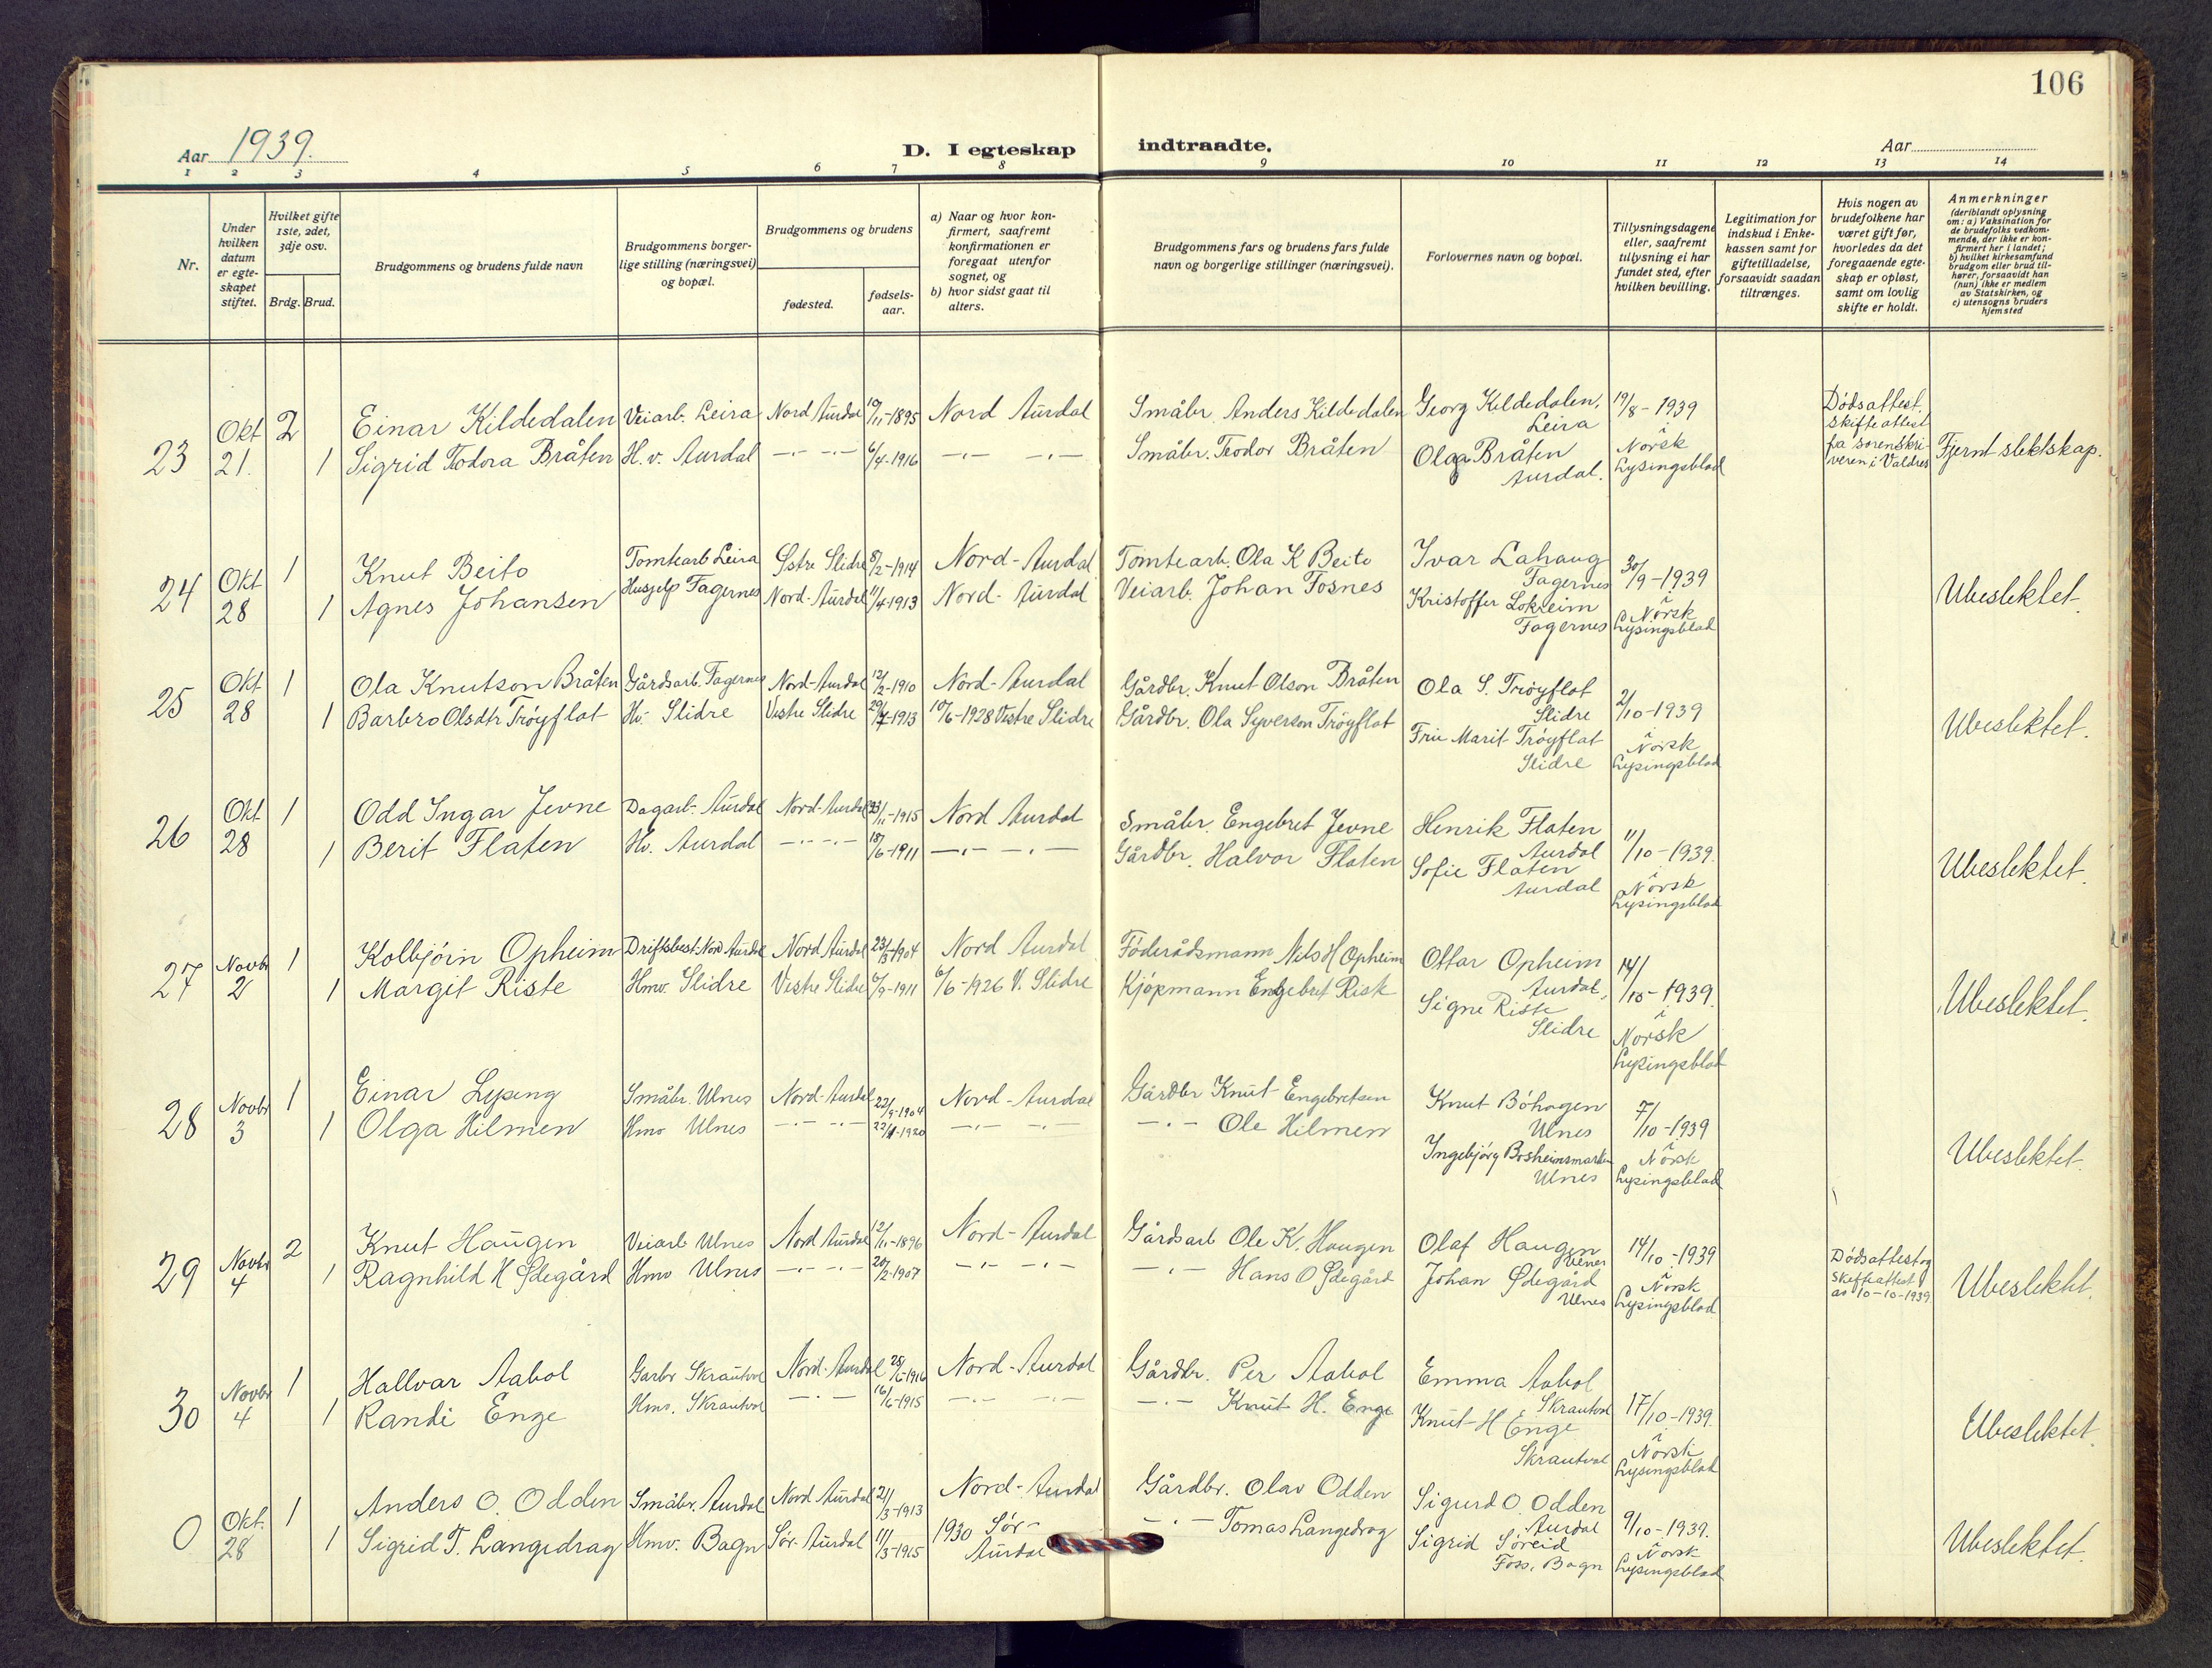 106
Aar 1939.
D. I egteskap indtraadte.
Aar
1 2 3 4 5 6 7 8 9 10 11 12 13 14
Nr.
Under hvilken datum er egte-skapet stiftet.
Hvilket gifte 1ste, 2det, 3dje osv.
Brdg. Brud.
Brudgommens og brudens fulde navn
Brudgommens borger-lige stilling (næringsvei) og bopæl.
Brudgommens og brudens
fødested.
fødsels-aar.
a) Naar og hvor kon-firmert, saafremt konfirmationen er foregaat utenfor sognet, og
b) hvor sidst gaat til alters.
Brudgommens fars og brudens fars fulde navn og borgerlige stillinger (næringsvei).
Forlovernes navn og bopæl.
Tillysningsdagene eller, saafremt tillysning ei har fundet sted, efter hvilken bevilling.
Legitimation for indskud i Enke-kassen samt for giftetilladelse, forsaavidt saadan tiltrænges.
Hvis nogen av brudefolkene har været gift før, hvorledes da det foregaaende egte-skap er opløst, samt om lovlig skifte er holdt.
Anmerkninger (deriblandt oplysning om: a) Vaksination for de brudefolks vedkom-mende, der ikke er kon-firmert her i landet; b) hvilket kirkesamfund brudgom eller brud til-hører, forsaavidt han (hun) ikke er medlem av Statskirken, og c) utensogns bruders hjemsted
23 Okt 21. 2 Einar Kildedalen Veiarb. Leira Nord Aurdal 19/11-1895 Nord Aurdal Småbr. Anders Kildedalen Georg Kildedalen, Leira 19/8-1939
1 Sigrid Todora Bråten H.v. Aurdal —·— —·— 6/4-1916 —·— —·— Småbr. Teodor Bråten Olga Bråten Aurdal. Norsk Lysingsblad
Dødsattest. Skifteattest fra sorenskri-veren i Valdres
Fjernt slektskap.
24 Okt 28 1 Knut Beito Tomtearb Leira Østre Slidre 8/2-1914 Nord-Aurdal Tomtearb. Ola K Beito Ivar Lahaug Fagernes 30/9-1939
1 Agnes Johansen Hushjelp Fagernes Nord-Aurdal 11/4-1913 Nord-Aurdal Veiarb. Johan Fosnes Kristoffer Lokreim Fagernes i Norsk Lysingsblad
Ubeslektet.
25 Okt 28 1 Ola Knutson Bråten Gårdsarb. Fagernes Nord-Aurdal 12/2-1910 Nord-Aurdal Gårdbr. Knut Olson Bråten Ola S. Trøyflat Slidre 2/10-1939
1 Barbro Olsdtr Trøyflat Hv. Slidre Vestre Slidre 29/7-1913 10/6-1928 Vestre Slidre Gårdbr. Ola Syverson Trøyflat Fru Marit Trøyflat Slidre i Norsk Lysingsblad
Ubeslektet.
26 Okt 28 1 Odd Ingar Jevne Dagarb. Aurdal Nord-Aurdal 23/11-1915 Nord Aurdal Småbr. Engebret Jevne Henrik Flaten Aurdal 11/10-1939.
1 Berit Flaten Hv. Aurdal —·— —·— 18/6-1911 —·— —·— Gårdbr. Halvor Flaten Sofie Flaten Aurdal i Norsk Lysingsblad
Ubeslektet.
27 Novbr 2 1 Kolbjørn Opheim Driftsbest. Nord Aurdal Nord Aurdal 23/3-1904 Nord Aurdal Føderådsmann Nils H Opheim Ottar Opheim Aurdal. 14/10-1939.
1 Margit Riste Hmv. Slidre Vestre Slidre 6/9-1911 6/6-1926 V. Slidre Kjøpmann Engebret Risk Signe Riste Slidre i Norsk Lysingsblad
Ubeslektet.
28 Novbr 3 1 Einar Lysing Småbr. Ulnes Nord-Aurdal 22/9-1904 Nord-Aurdal Gårdbr Knut Engebretsen Knut Bøhagen Ulnes 7/10-1939
1 Olga Hilmen Hmv Ulnes —·— —·— 22/11-1920 —·— —·— —·— Ole Hilmen Ingebjørg Bosheimsmarken Ulnes i Norsk Lysingsblad
Ubeslektet.
29 Novbr 4 2 Knut Haugen Veiarb Ulnes Nord Aurdal 12/11-1896 Nord-Aurdal Gårdsarb Ole K. Haugen Olaf Haugen Ulnes 14/10-1939
1 Ragnhild H Ødegård Hmv Ulnes —·— —·— 20/2-1907 —·— —·— —·— Hans O Ødegård Johan Ødegård Ulnes i Norsk Lysingsblad
Dødsattest og Skifteattest av 10-10-1939
Ubeslektet.
30 Novbr 4 1 Hallvar Aabol Garbr Skrautvol Nord-Aurdal 28/6-1916 Nord-Aurdal Gårdbr. Per Aabol Emma Aabol Skrautvol 17/10-1939.
1 Randi Enge Hmv. Skrautvol —·— 16/6-1915 —·— —·— —·— Knut H. Enge Knut H Enge Skrautval i Norsk Lysingsblad
Ubeslektet.
0 Okt. 28 1 Anders O. Odden Småbr. Aurdal Nord Aurdal 21/3-1913 Nord-Aurdal Gårdbr. Olav Odden Sigurd O. Odden Aurdal 9/10-1939.
1 Sigrid T. Langedrag Hmv. Bagn Sør-Aurdal 11/3-1915 1930 Sør-Aurdal —·— Tomas Langedrag Sigrid Søreid Foss, Bagn i Norsk Lysingsblad
Ubeslektet.